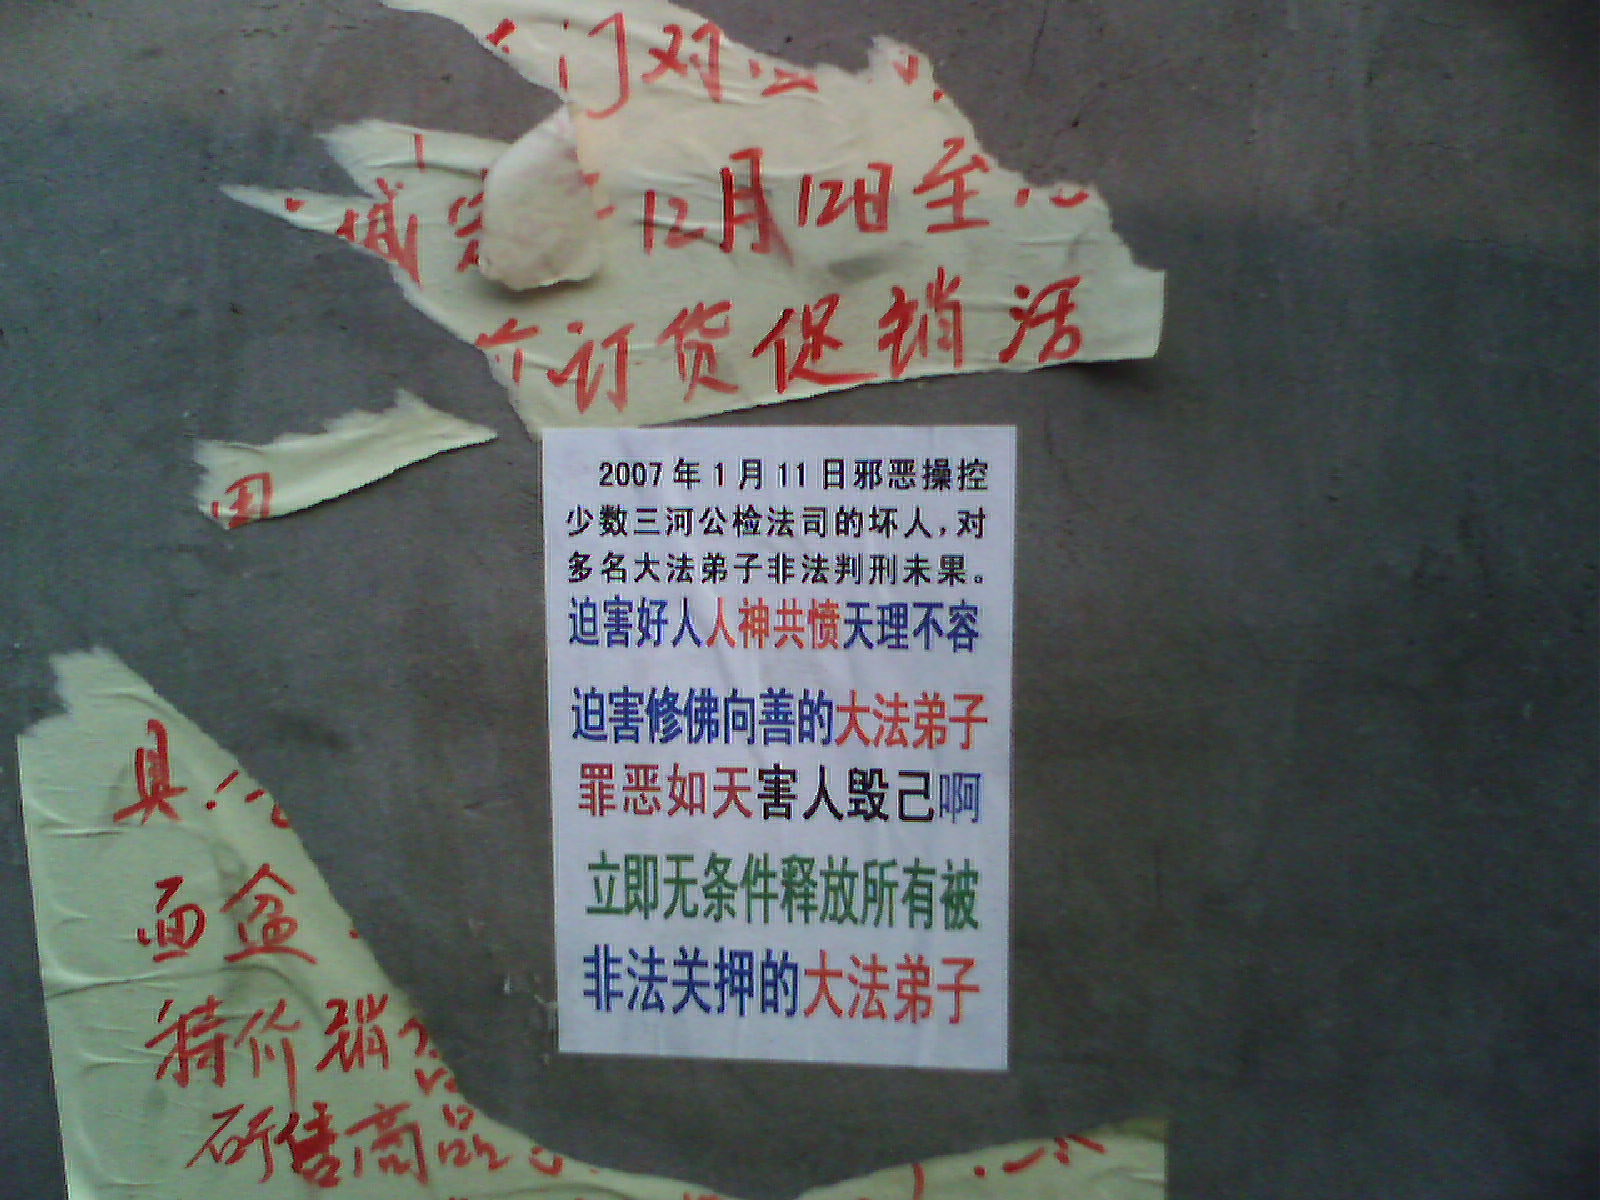 门对
城
12月12日至
订货促销活
田
2007年1月11日邪恶操控
少数三河公检法司的坏人,对
多名大法弟子非法判刑未果。
迫害好人人神共愤天理不容
迫害修佛向善的大法弟子
罪恶如天害人毁己啊
立即无条件释放所有被
非法关押的大法弟子
具
面盆
特价销
所售商品